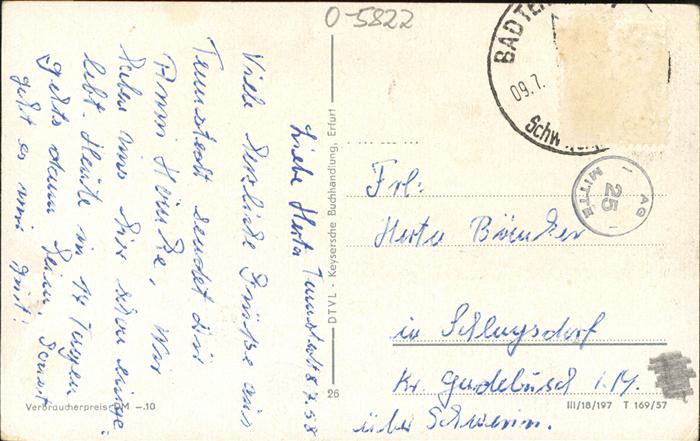 O-5822
BAD TEN
09.7.
Schw
AG
25
MITTE
Liebe Herta Tennstedt 8.7.58
Viele herzliche Grüße aus
Tennstedt sendet dir
Anni Heincke, Wir
haben uns hier schon einge-
lebt. Heute in 14 Tagen
gehts dann heim. Sonst
geht es mir gut!
Verbraucherpreis DM –.10
DTVL - Keysersche Buchhandlung, Erfurt
26
Frl:
Herta
in Schlagsdorf
Kr. Gadebusch i. M.
über Schwerin.
III/18/197 T 169/57